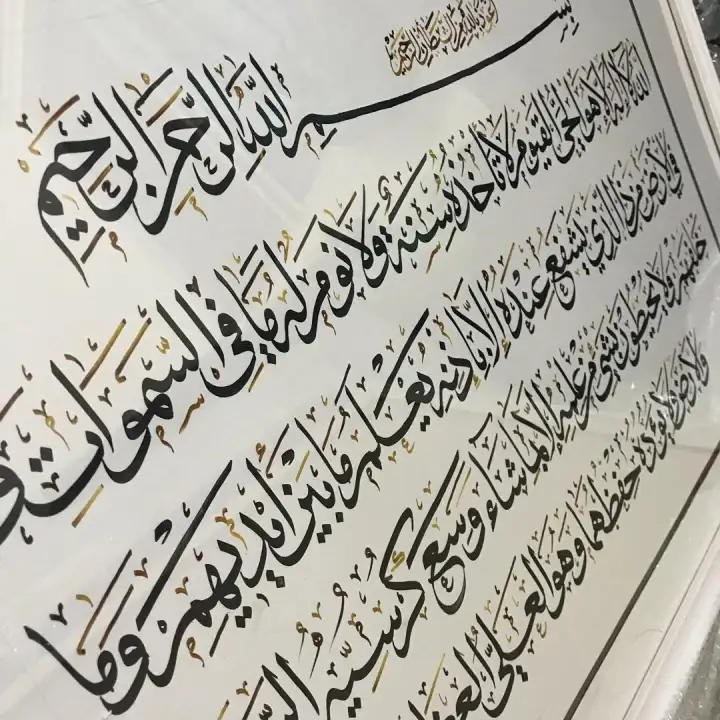 أعوذ بالله من الشيطان الرجيم
بسم الله الرحمن الرحيم
الله لا إله إلا هو الحي القيوم لا تأخذه سنة ولا نوم له ما في السموات و
في الأرض من ذا الذي يشفع عنده إلا بإذنه يعلم ما بين أيديهم وما
خلفهم ولا يحيطون بشيء من علمه إلا بما شاء وسع كرسيه
والأرض ولا يؤده حفظهما وهو العلي